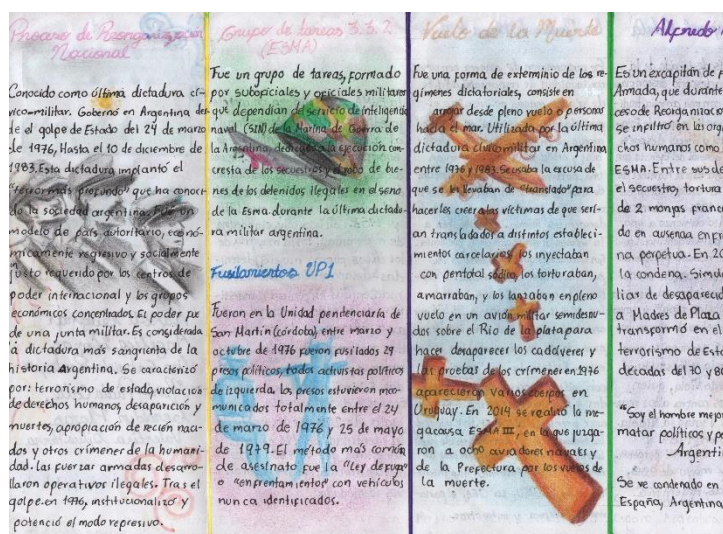 Proceso de Reorganización
Nacional
Conocido como última dictadura cí-
vico-militar. Gobernó en Argentina des-
de el golpe de Estado del 24 de marzo
de 1976, Hasta el 10 de diciembre de
1983. Esta dictadura implantó el
"terror más profundo" que ha conoci-
do la sociedad argentina. Fue un
modelo de país autoritario, econó-
micamente regresivo y socialmente
justo requerido por los centros de
poder internacional y los grupos
económicos concentrados. El poder fue
de una junta militar. Es considerada
la dictadura más sangrienta de la
historia Argentina. Se caracterizó
por: terrorismo de estado, violación
de derechos humanos, desaparición y
muertes, apropiación de recién naci-
dos y otros crímener de la humani-
dad. Las fuerzar armadas desarro-
llaron operativos ilegales. Tras el
golpe en 1976, institucionalizó y
potenció el modo represivo.
Grupo de tareas 3.3.2
(ESMA)
Fue un grupo de tareas, formado
por suboficiales y oficiales militares
que dependían de servicio de inteligencia
naval (SIN) de la Marina de Guerra de
la Argentina, dedicada a la ejecución con-
cresta de los secuestros y el robo de bie-
nes de los detenidos ilegales en el seno
de la Esma durante la última dictadu-
ra militar argentina.
Fusilamientos UP1
Fueron en la Unidad penitenciaría de
San Martín (córdoba), entre marzo y
octubre de 1976 fueron fusilados 29
presos políticos, todos activistas políticos
de izquierda. Los presos estuvieron inco-
municados totalmente entre el 24
de marzo de 1976 y 25 de mayo
de 1979. El método más común
de asesinato fue la "Ley de fuga"
o "enfrentamiento" con vehículos
nunca identificados.
Vuelo de la Muerte
Fue una forma de exterminio de los re-
gímenes dictatoriales, consiste en
arrojar desde pleno vuelo a personas
hacia el mar. Utilizada por la última
dictadura cívico-militar en Argentina,
entre 1976 y 1983. Se usaba la excusa de
que se los llevaban de "translado" para
hacerles creer a las víctimas de que serí-
an transladador a distintos estableci-
mientos carcelarios, los inyectaban
con pentotal sódico, los torturaban,
amarraban, y los lanzaban en pleno
vuelo en un avión militar semidesnu-
dos sobre el Rio de la plata para
hacer desaparecer los cadáveres y
las pruebas de los crímener en 1976
aparecieron varios cuerpos en
Uruguay. En 2014 se realizó la me-
gacausa ESMA III, en la que juzga-
ron a ocho aviadores navales y
de la Prefectura por los vuelos de
la muerte.
Alfredo
Es un excapitán de
Armada, que durante
ceso de Reorganizac
se infiltró en las on
chos humanos como
ESMA. Entre sus de
el secuestro, tortura
de 2 monjas franc
do en ausencia en Fr
na perpetua. En 20
la condena. Simul
liar de desaparec
a Madres de Plaza
transformó en el
terrorismo de Est
décadas del 70 y 80
"Soy el hombre mejor
matar políticos y pe
Argenti
Se ve condenado en
España, Argentina